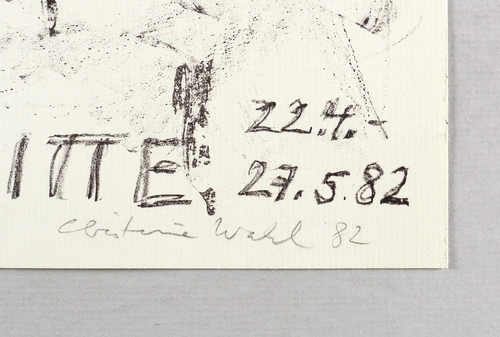 22.4.-
ITTE 27.5.82
Christine Wahl 82